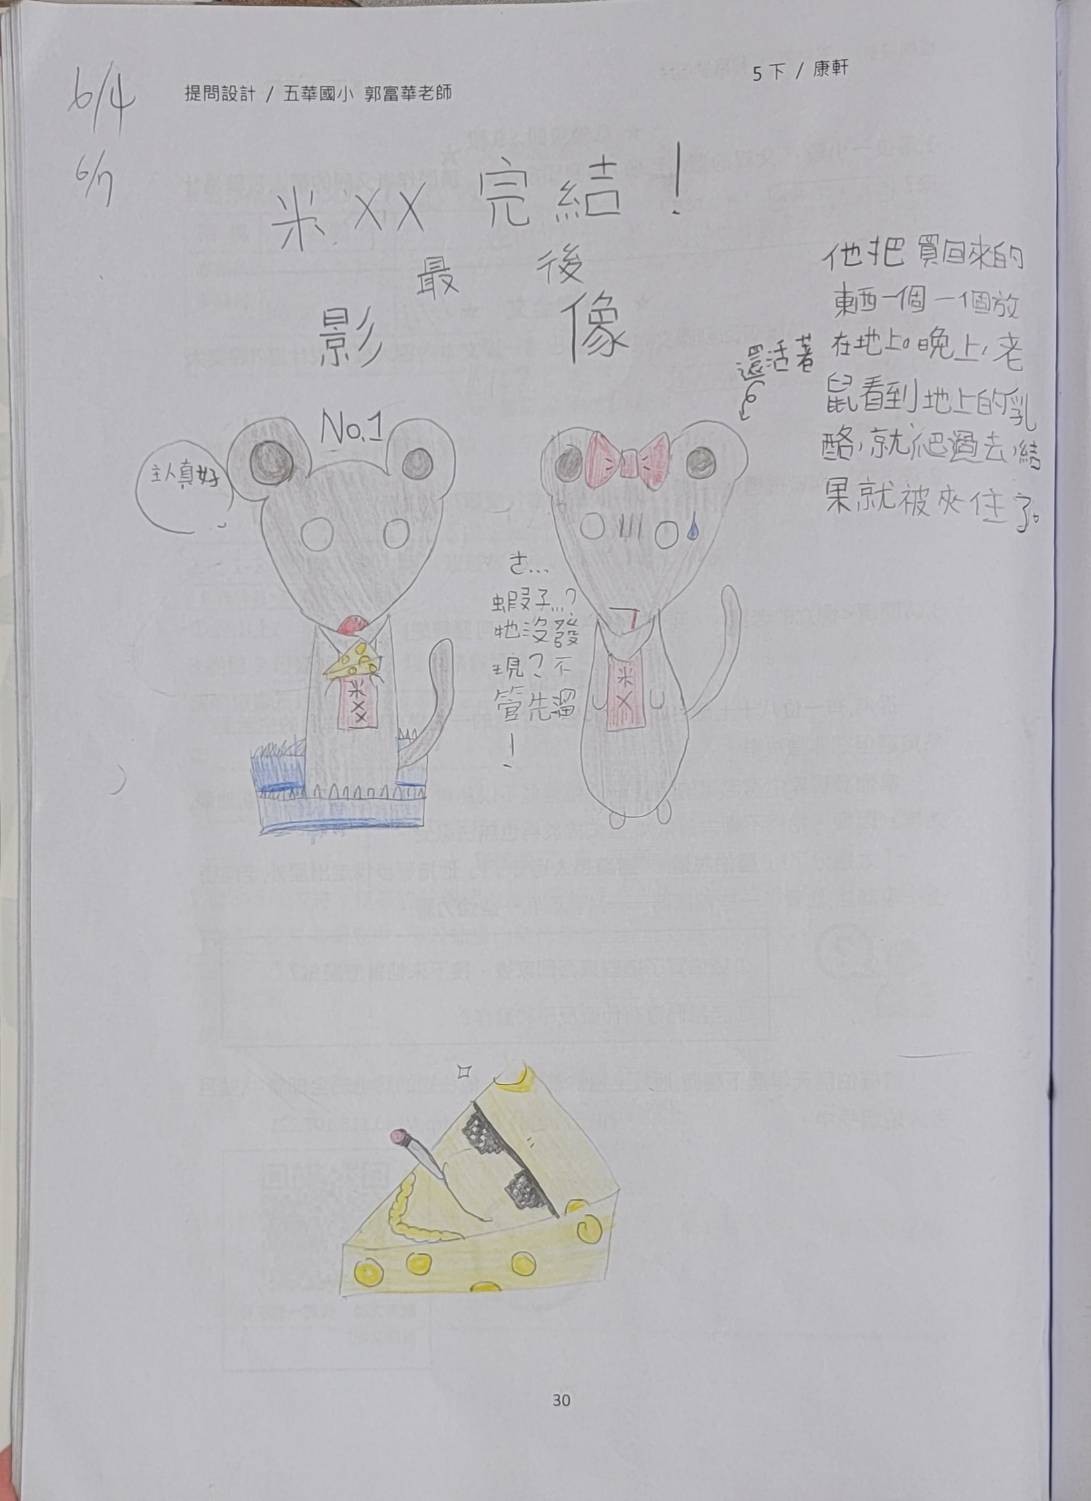 6/4
6/7
提問設計 / 五華國小 郭富華老師
5下 / 康軒
米XX 完結!
最後
影像
他把買回來的
東西一個一個放
在地上。晚上,老
鼠看到地上的乳
酪,就爬過去,結
果就被夾住了。
還活著
No.1
主人真好
さ...
蝦子...?
牠沒發
現?不
管先溜
!
米
X
X
米
X
30